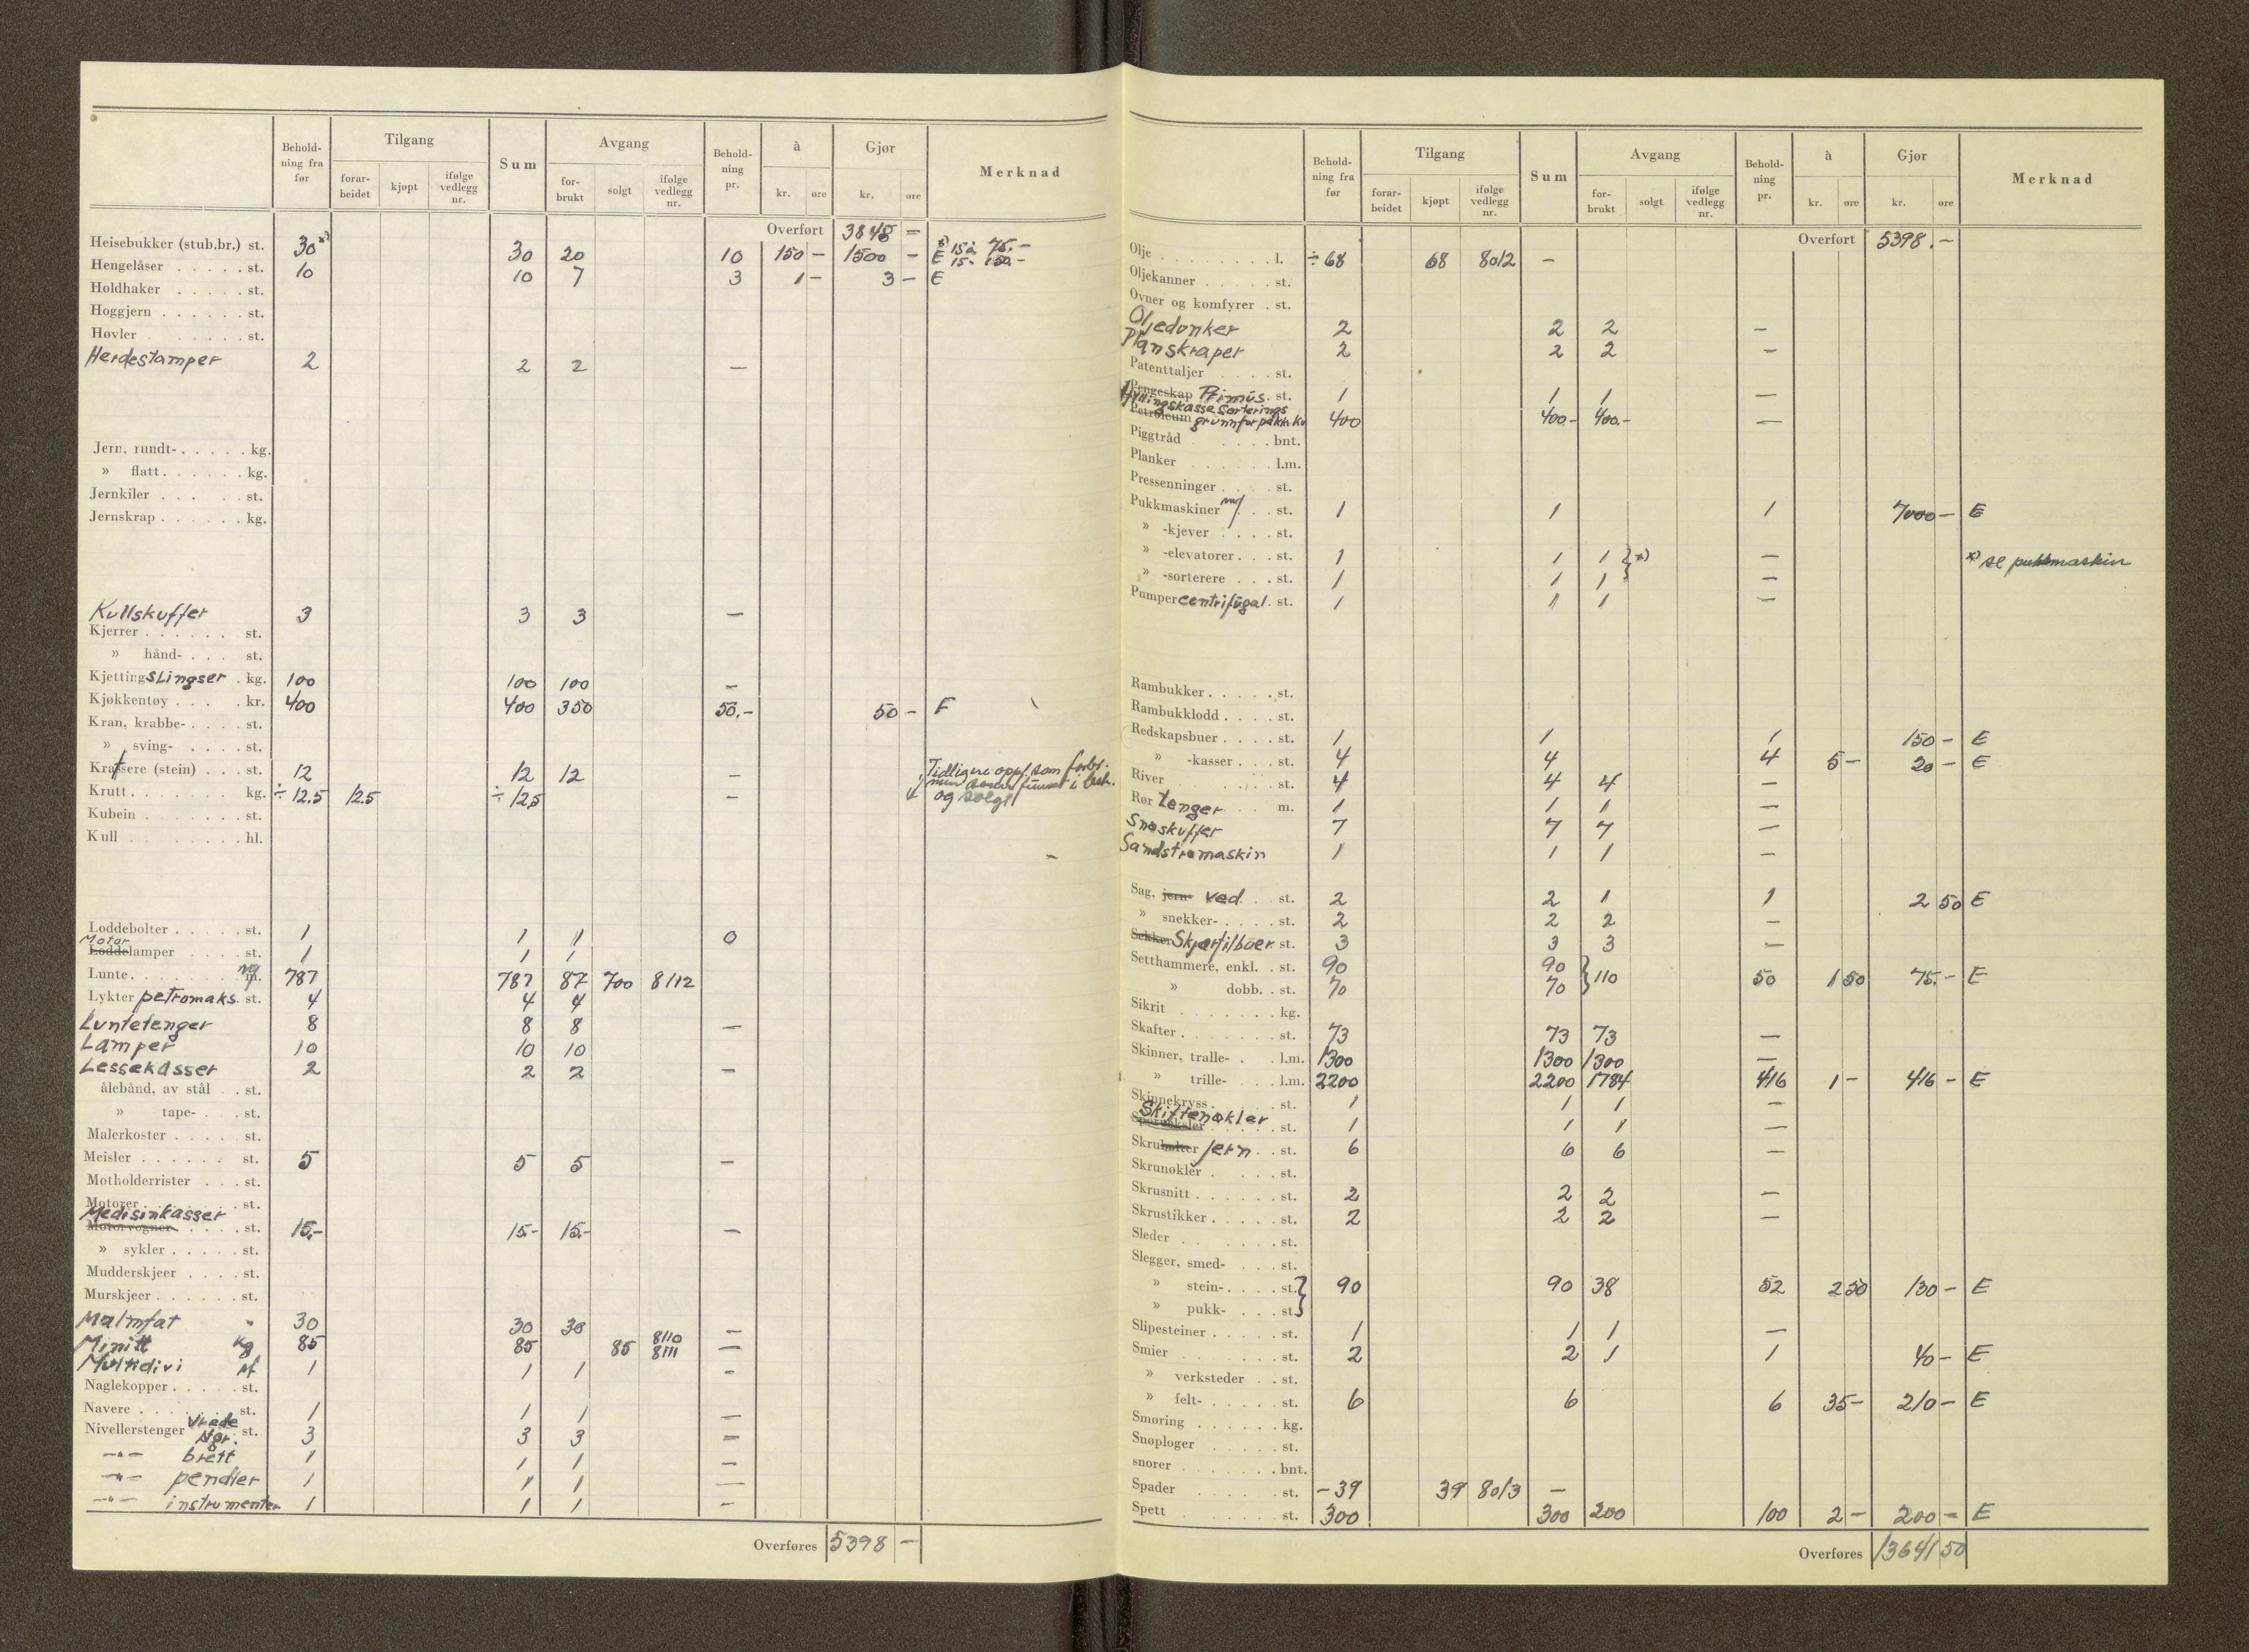 Behold-
ning fra
før
Tilgang
forar-
beidet
kjøpt
ifølge
vedlegg
nr.
Sum
Avgang
for-
brukt
solgt
ifølge
vedlegg
nr.
Behold-
ning
pr.
à
kr. øre
Gjør
kr. øre
Merknad
Overført 3845 —
Heisebukker (stub.br.) st. 30 x) 30 20 10 150 — 1500 — E x) 15 à 75.—
15 - 150.-
Hengelåser . . . . . st. 10 10 7 3 1 — 3 — E
Holdhaker . . . . . st.
Hoggjern . . . . . . st.
Høvler . . . . . . st.
Herdestamper 2 2 2 —
Jern, rundt- . . . . . kg.
» flatt . . . . . . kg.
Jernkiler . . . . . st.
Jernskrap . . . . . . kg.
Kullskuffer 3 3 3 —
Kjerrer . . . . . . st.
» hånd- . . . st.
Kjettingslingser . kg. 100 100 100 —
Kjøkkentøy . . . . kr. 400 400 350 50.- 50 — E
Kran, krabbe- . . . . st.
» sving- . . . . st.
Kratsere (stein) . . . st. 12 12 12 — Tidligere oppf. som forbr.
Krutt . . . . . . . kg. ÷ 12,5 12.5 ÷ 12,5 — men senere funnet i beh.
og solgt
Kubein . . . . . . . st.
Kull . . . . . . . hl.
Loddebolter . . . . . st. 1 1 1 0
Motor
Loddelamper . . . . st. 1 1 1
Lunte . . . . . . . m. 787 787 87 700 8112
Lykter petromaks. st. 4 4 4
Luntetenger 8 8 8 —
Lamper 10 10 10
Lessekasser 2 2 2 —
ålebånd, av stål . . st.
» tape- . . . st.
Malerkoster . . . . . st.
Meisler . . . . . . st. 5 5 5 —
Motholderrister . . . st.
Motorer . . . . . . st.
Medisinkasser
Motorvogner . . . . st. 15.- 15- 15.- —
» sykler . . . . . st.
Mudderskjeer . . . . st.
Murskjeer . . . . . . st.
Malmfat " 30 30 30 —
Minitt kg 85 85 85 8110 8111 —
Multidivi st 1 1 1 -
Naglekopper . . . . . st.
Navere . . . . . . . st. 1 1 1 —
Nivellerstenger st. 3 3 3 —
—"— brett 1 1 1 —
—"— pendler 1 1 1 —
—"— instrumenter 1 1 1 —
Overføres 5398 —
Behold-
ning fra
før
Tilgang
forar-
beidet
kjøpt
ifølge
vedlegg
nr.
Sum
Avgang
for-
brukt
solgt
ifølge
vedlegg
nr.
Behold-
ning
pr.
à
kr. øre
Gjør
kr. øre
Merknad
Overført 5398.—
Olje . . . . . . . . l. ÷ 68 68 8012 —
Oljekanner . . . . . st.
Ovner og komfyrer . st.
Oljedunker 2 2 2 —
Planskraper 2 2 2 —
Patenttaljer . . . . st.
Pengeskap Primus. st. 1 1 1 —
Petroleum 400 400.- 400.- —
Piggtråd . . . . bnt.
Planker . . . . . . l.m.
Pressenninger . . . . st.
Pukkmaskiner . . . st. 1 1 1 7000 — E
» -kjever . . . . st.
» -elevatorer . . . st. 1 1 1 } x) — x) se pukkmaskin
» -sorterere . . . st. 1 1 1 —
Pumper centrifugal. st. 1 1 1 —
Rambukker . . . . . st.
Rambukklodd . . . . st.
Redskapsbuer . . . . st. 1 1 1 150 — E
» -kasser . . . st. 4 4 4 5 — 20 — E
River . . . . st. 4 4 4 —
Rør tenger . . . m. 1 1 1 —
Snøskuffer 7 7 7 —
Sandstrømaskin 1 1 1 —
Sag, jern- ved . . st. 2 2 1 1 2 50 E
» snekker- . . . . st. 2 2 2 —
Sekker Skjørfilbuer st. 3 3 3 —
Setthammere, enkl. . st. 90 90 } 110 50 1 50 75.— E
» dobb. . st. 70 70
Sikrit . . . . . . . kg.
Skafter . . . . . . . st. 73 73 73 —
Skinner, tralle- . . l.m. 1300 1300 1300 —
» trille- . . . l.m. 2200 2200 1784 416 1 — 416 — E
Skinnekryss . . . . . st. 1 1 1 —
Skiftenøkler
st. 1 1 1 —
Skrubolter jern . . st. 6 6 6 —
Skrunøkler . . . . st.
Skrusnitt . . . . . . st. 2 2 2 —
Skrustikker . . . . . st. 2 2 2 —
Sleder . . . . . . st.
Slegger, smed- . . . st.
» stein- . . . . st. } 90 90 38 52 2 50 130 — E
» pukk- . . . . st.
Slipesteiner . . . . . st. 1 1 1 —
Smier . . . . . . . st. 2 2 1 1 40 — E
» verksteder . . st.
» felt- . . . . . st. 6 6 6 35 — 210 — E
Smøring . . . . . . kg.
Snøploger . . . . . st.
snorer . . . . . . . bnt.
Spader . . . . . . st. — 39 39 8013 —
Spett . . . . . . . st. 300 300 200 100 2 — 200 — E
Overføres 13641 50